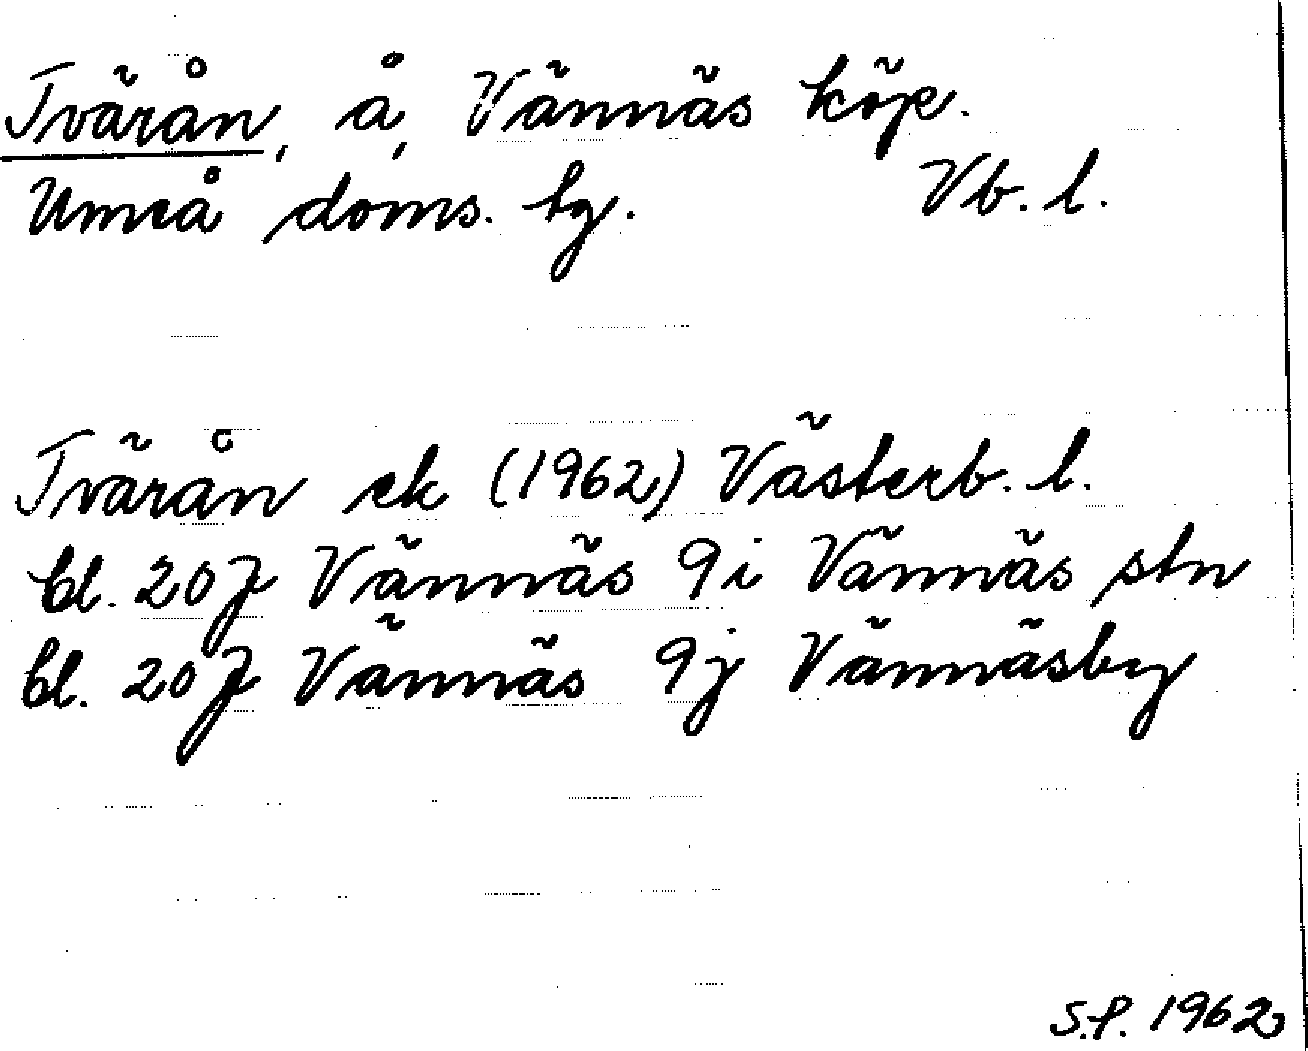 Tvärån, å, Vännäs köp.
Umeå doms. tg. Vb. l.
Tvärån ek (1962) Västerb. l.
bl. 20 J Vännäs 9i Vännäs stn
bl. 20 J Vännäs 9j Vännäsby
S.P. 1962